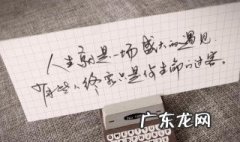 人生就是一场盛大的遇见
有些人终究只是你生命的过客。
广东龙网